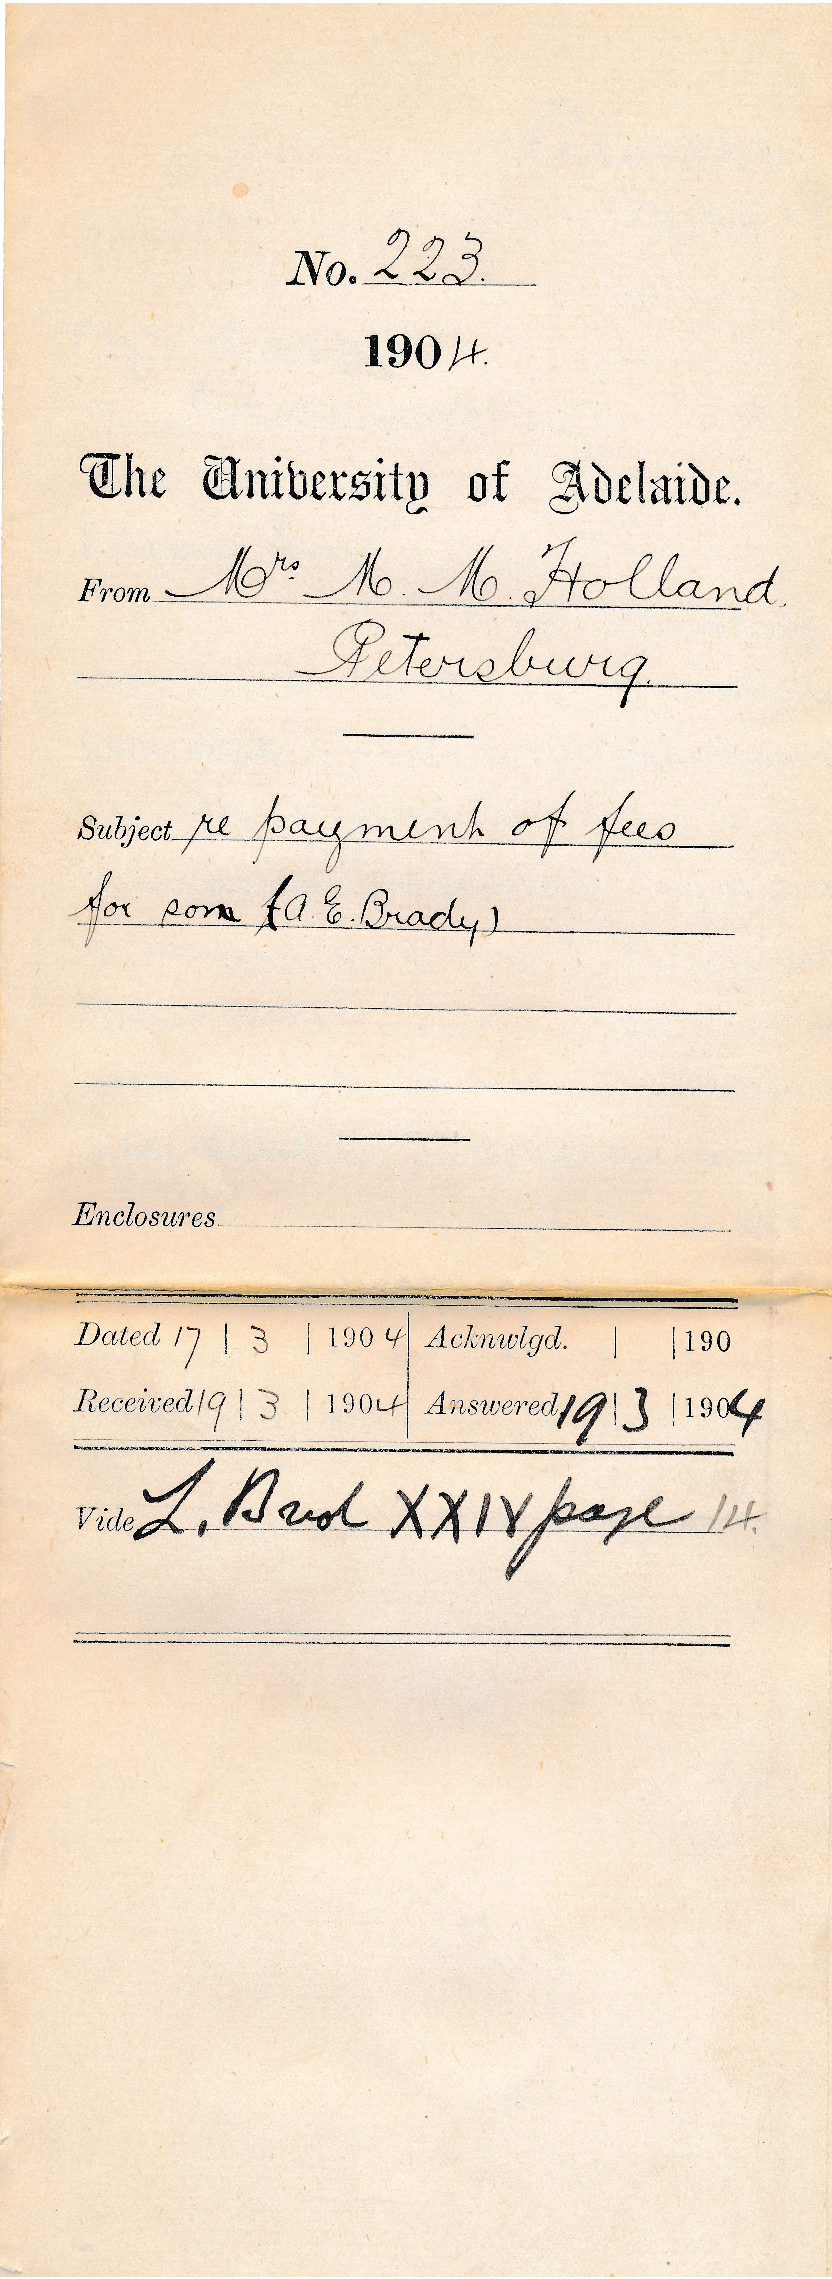 No. 223.
1904.
The University of Adelaide.
From Mrs. M. M. Holland.
Petersburg.
Subject re payment of fees
for son (A. E. Brady)
Enclosures
Dated 17 | 3 | 1904 Acknwlgd. | | 190
Received 19 | 3 | 1904 Answered 19 | 3 | 1904
Vide L. Book XXIV page 14.